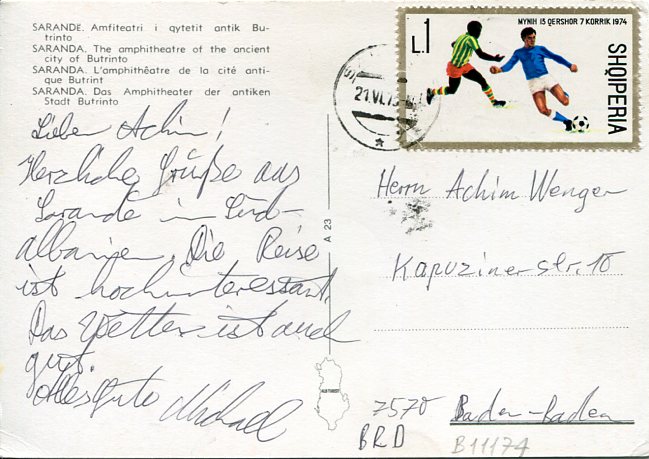 SARANDE. Amfiteatri i qytetit antik Bu-
trinto
SARANDA. The amphitheatre of the ancient
city of Butrinto
SARANDA. L'amphithêatre de la cité anti-
que Butrint
SARANDA. Das Amphitheater der antiken
Stadt Butrinto
Lieber Achim!
Herzliche Grüße aus
Sarande in Süd-
albanien. Die Reise
ist hochinteressant.
Das Wetter ist auch
gut.
Alles Gute Michael
A 23
ALBTURIST
L.1
MYNIH 13 QERSHOR 7 KORRIK 1974
SHQIPERIA
21.VI.75
Herrn Achim Wenger
Kapuzinerstr. 10
7570 Baden-Baden
BRD
B11174